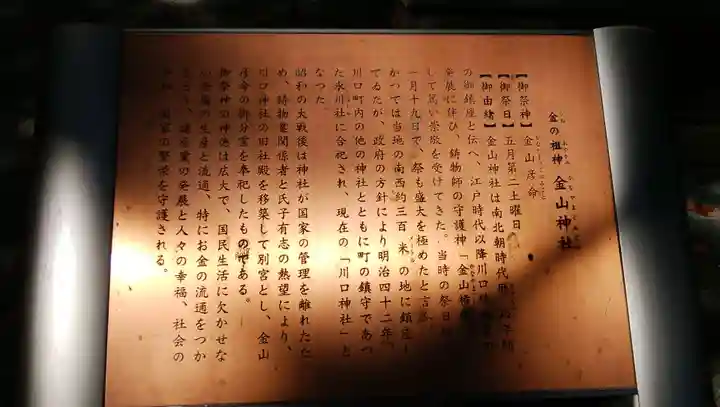 金の祖神 金山神社
【御祭神】金山彦命
【御祭日】五月第二土曜日
【御由緒】金山神社は南北朝時代
の御鎮座と伝へ、江戸時代以降川口
発展に伴ひ、鋳物師の守護神「金山権
して篤い崇敬を受けてきた。当時の祭日
一月十九日で、祭も盛大を極めたと言
かつては当地の南西約三百米の地に鎮座し
てゐたが、政府の方針により明治四十二年、
川口町内の他の神社とともに町の鎮守であつ
た氷川社に合祀され、現在の「川口神社」と
なつた
昭和の大戦後は神社が国家の管理を離れたた
め、鋳物業関係者と氏子有志の熱望により、
川口神社の旧社殿を移築して別宮とし、金山
彦命の御分霊を奉祀したものである。
御祭神の神徳は広大で、国民生活に欠かせな
い金属の生産と流通、特にお金の流通をつか
諸産業の発展と人々の幸福、社会の
国家の繁栄を守護される。